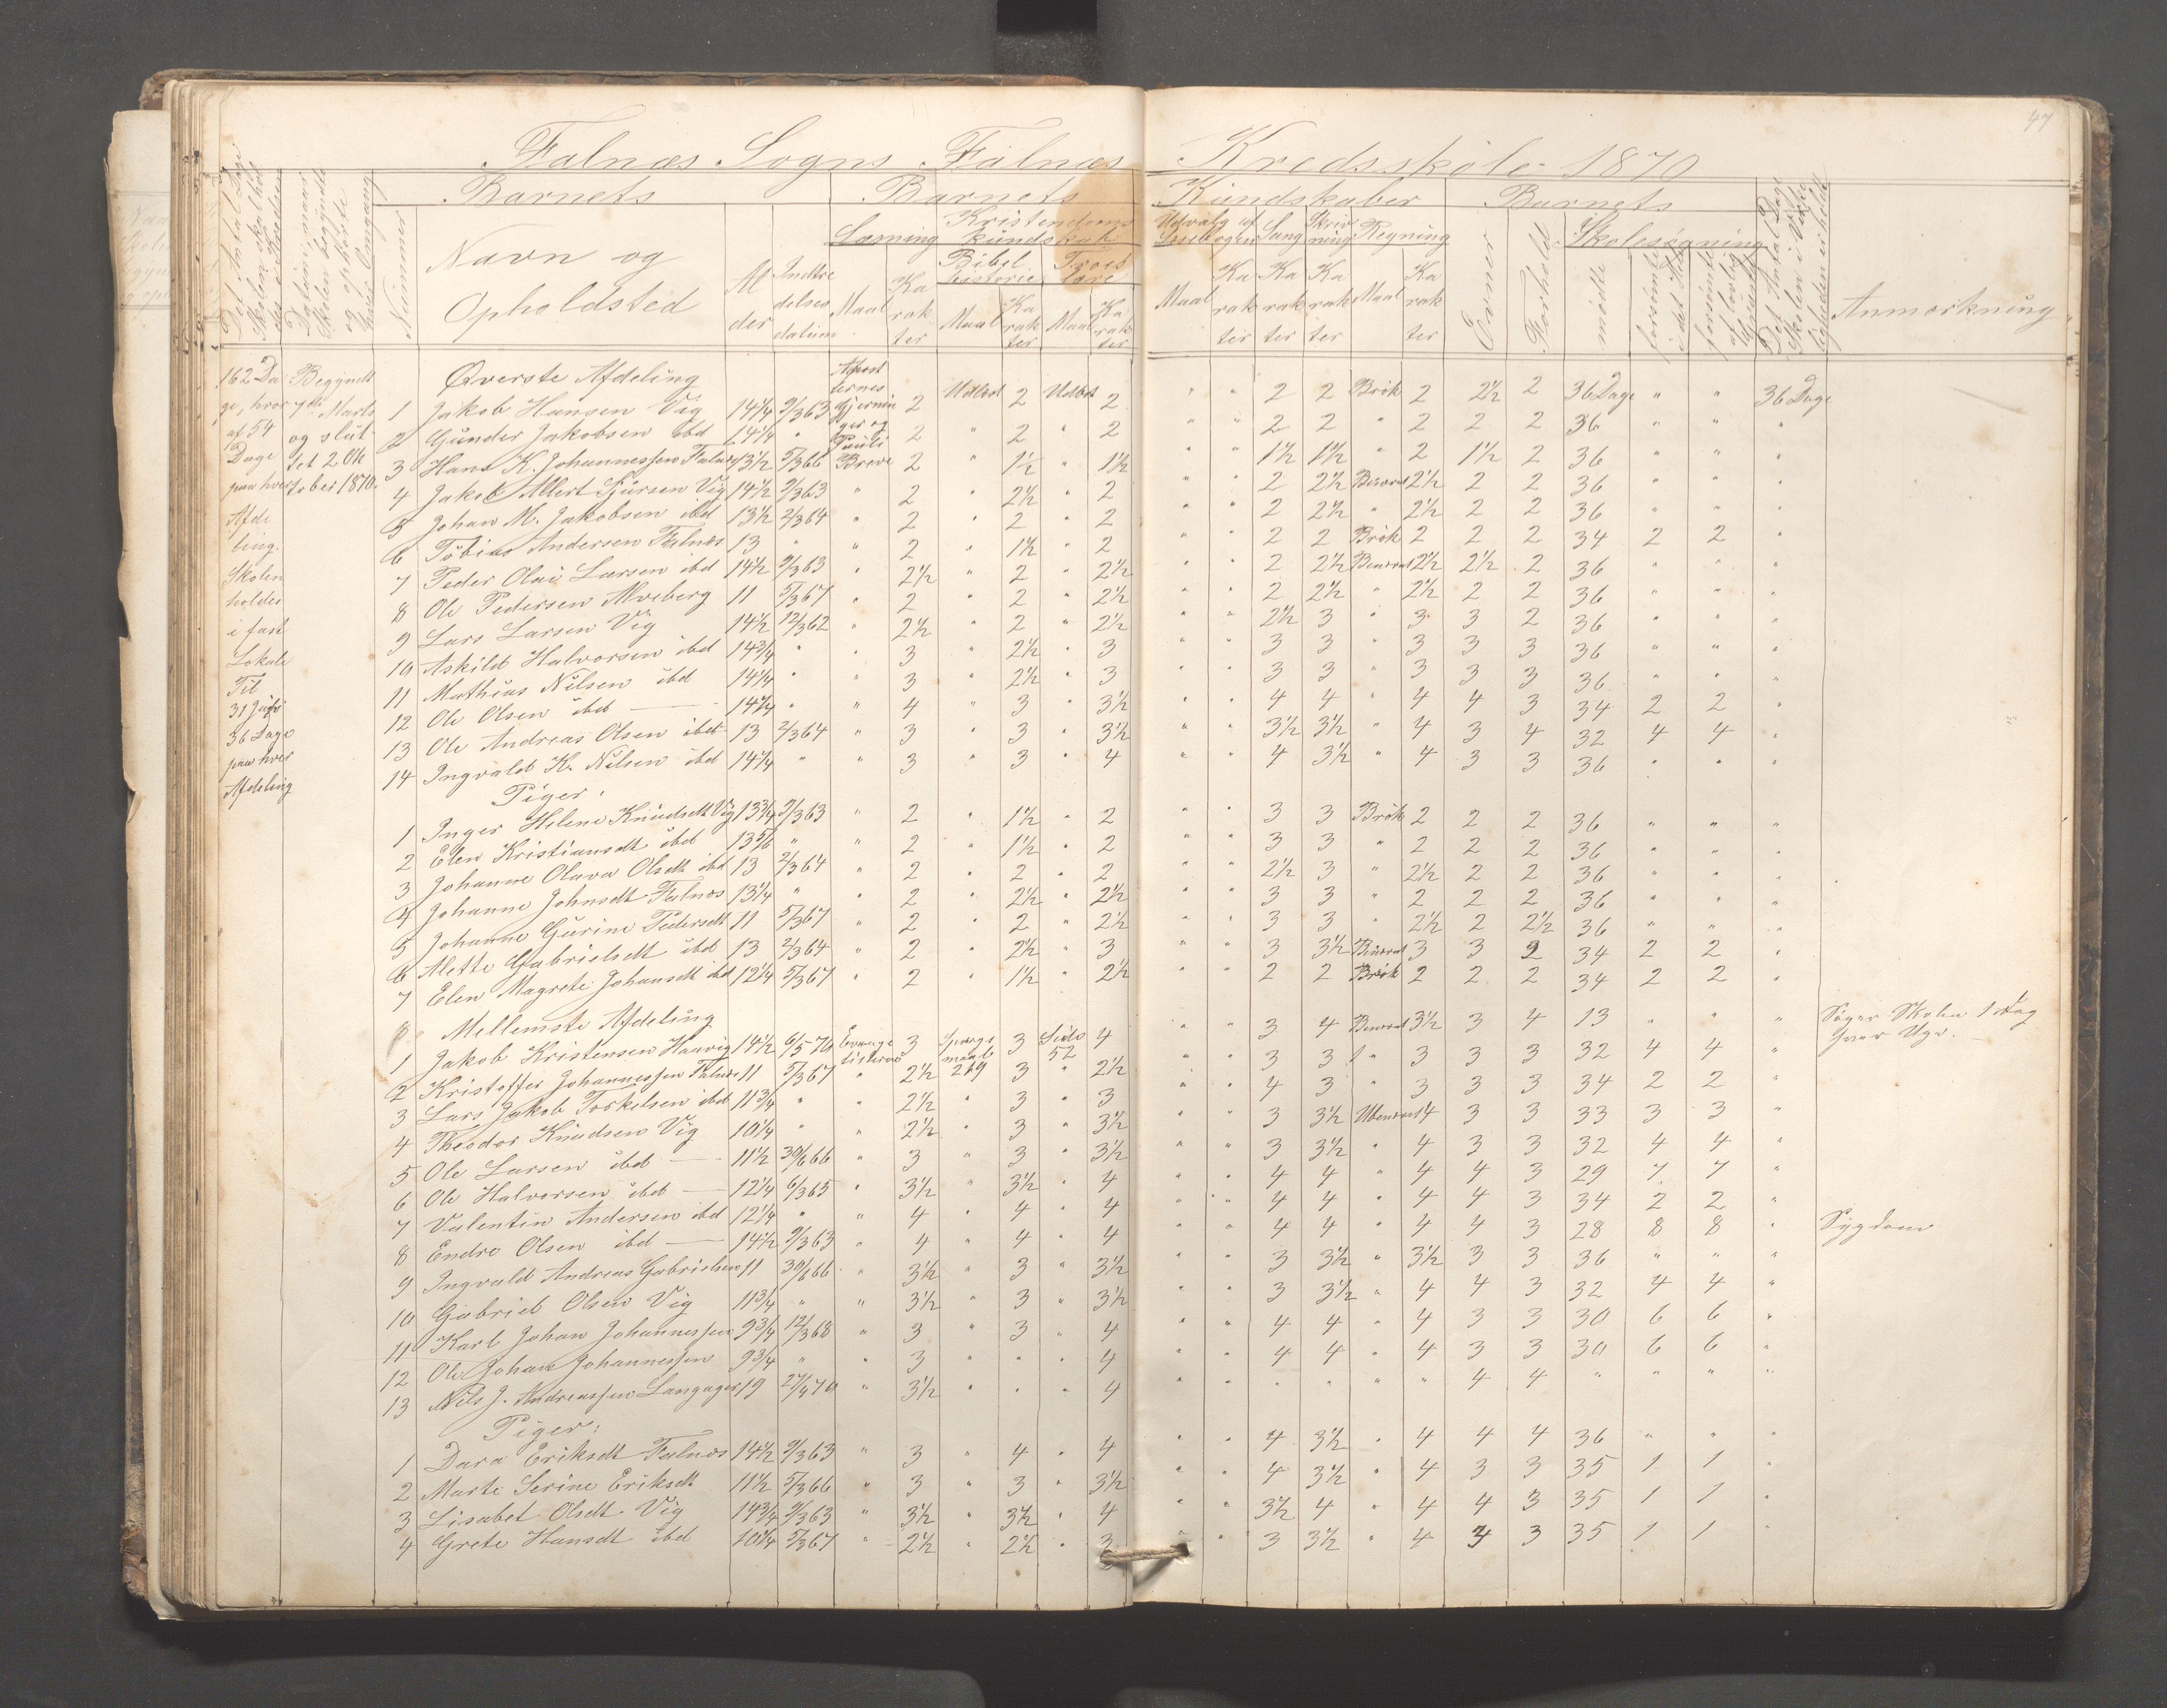 47
Falnæs Sogns Falnæs Kredsskole 1870
Barnets Barnets Kundskaber Barnets
Nummer Navn og Opholdsted Alder Indtrædelsesdatum Læsning Kristendomskundskab Udvalg af Læsebogen Sang Skrivning Regning Evner Forhold Skolesøgning Anmærkning
Maal Karakter Bibelhistorie Troeslære Maal Karakter Maal Karakter Maal Karakter Karakter Karakter Maal Karakter mødte forsømte i det Hele forsømte af lovlig Grund
162 Dage, hvoraf 54 Dage paa hver Afdeling. Skolen holdes i fast Lokale Til 31 Juli 36 Dage paa hver Afdeling
Begyndt 7de Marts og sluttet 2 Oktober 1870.
Øverste Afdeling
1 Jakob Hansen Vig 14¼ 9/3 63 Apostlernes Gjerninger og Pauli Breve 2 Udlæst 2 Udlæst 2 " " 2 2 Brøk 2 2½ 2 36 Dage " " 36 Dage
2 Gunder Jakobsen ibd 14¼ " 2 " 2 " 2 " " 2 2 " 2 2 2 36 " " "
3 Hans K. Johannessen Falnæs 13½ 5/3 66 2 " 1½ " 1½ " " 1½ 1½ " 2 1½ 2 36 " " "
4 Jakob Albert Sjursen Vig 14½ 9/3 63 " 2 " 2½ " 2 " " 2 2½ Benævnt 2½ 2 2 36 " " "
5 Johan M. Jakobsen ibd 13½ 2/3 64 " 2 " 2 " 2 " " 2 2½ " 2½ 2 2 36 " " "
6 Tobias Andersen Falnæs 13 " " 2 " 1½ " 2 " " 2 2 Brøk 2 2 2 34 2 2 "
7 Peder Olai Larsen ibd 14½ 9/3 63 " 2½ " 2 " 2½ " " 2 2½ Benævnt 2½ 2½ 2 36 " " "
8 Ole Pedersen Alveberg 11 5/3 67 " 2 " 2 " 2½ " " 2 2½ " 2½ 2 2 36 " " "
9 Lars Larsen Vig 14½ 12/3 62 " 2½ " 2 " 2½ " " 2½ 3 " 3 3 2 36 " " "
10 Askild Halvorsen ibd 14¾ " " 3 " 2½ " 3 " " 3 3 " 3 3 3 36 " " "
11 Mathias Nilsen ibd 14¼ " " 3 " 2½ " 3 " " 3 3 " 3 3 3 36 " " "
12 Ole Olsen ibd 14¼ " " 4 " 3 " 3½ " " 4 4 " 4 4 3 34 2 2 "
13 Ole Andreas Olsen ibd 13 2/3 64 " 3 " 3 " 3½ " " 3½ 3½ " 4 3 4 32 4 4 "
14 Ingvald K. Nilsen ibd 14¼ " " 3 " 3 " 4 " " 4 3½ " 4 3 3 36 " " "
Piger:
1 Inger Helene Knudsdt Vig 13¾ 9/3 63 " 2 " 1½ " 2 " " 3 3 Brøk 2 2 2 36 " " "
2 Elen Kristiansdt ibd 13 5/6 " " 2 " 1½ " 2 " " 3 3 " 2 2 2 36 " " "
3 Johanne Olava Olsdt ibd 13 2/3 64 " 2 " 2 " 2 " " 2½ 3 " 2½ 2 2 36 " " "
4 Johanne Johnsdt Falnæs 13¼ " " 2 " 2½ " 2½ " " 3 3 " 2 2 2 36 " " "
5 Johanne Gurine Pedersdt 11 5/3 67 " 2 " 2 " 2½ " " 3 3 " 2½ 2 2½ 36 " " "
6 Alette Gabrielsdt ibd 13 2/3 64 " 2 " 2½ " 3 " " 3 3½ Benævnt 3 3 2 34 2 2 "
7 Elen Magrete Johansdt ibd 12¼ 5/3 67 " 2 " 1½ " 2½ " " 2 2 Brøk 2 2 2 34 2 2 "
8 Mellemste Afdeling
1 Jakob Kristensen Haavig 14½ 6/5 70 Evangelisterne 3 Spørgsmaal 219 3 Side 52 4 " " 3 4 Benævnt 3½ 3 4 13 " " " Søger Skolen 1 Dag hver Uge.
2 Kristoffer Johannessen Falnæs 11 5/3 67 " 2½ 3 " 2½ " " 3 3 " 3 3 3 32 4 4 "
3 Lars Jakob Torkelsen ibd 11¾ " " 2½ " 3 " 3 " " 4 3 " 3 3 3 34 2 2 "
4 Theodor Knudsen Vig 10¼ " " 2½ " 3 " 3½ " " 3 3½ Ubenævnt 4 3 3 33 3 3 "
5 Ole Larsen ibd 11½ 30/6 66 " 3 " 3 " 3½ " " 3 3½ " 4 3 3 32 4 4 "
6 Ole Halvorsen ibd 12¼ 6/3 65 " 3½ " 3½ " 4 " " 4 4 " 4 4 3 29 7 7 "
7 Valentin Andersen ibd 12¼ " " 4 " 4 " 4 " " 4 4 " 4 4 3 34 2 2 "
8 Endre Olsen ibd 14½ 9/3 63 " 4 " 4 " 4 " " 4 4 " 4 4 3 28 8 8 " Sygdom
9 Ingvald Andreas Gabrielsen 11 30/6 66 " 3½ " 3 " 3½ " " 3 3½ " 3½ 3 3 36 " " "
10 Gabriel Olsen Vig 11¾ " " 3½ " 3 " 3½ " " 3 3½ " 4 4 3 32 4 4 "
11 Karl Johan Johannessen 9¾ 12/3 68 " 3 " 3 " 4 " " 4 4 " 4 3 3 30 6 6 "
12 Ole Johan Johannessen 9¾ " " 3 " " " 4 " " 4 4 " 4 3 3 30 6 6 "
13 Nils J. Andreassen Langager 19 27/4 70 " 3½ " " " 4 " " " " " " 4 4 " " " "
Piger:
1 Dara Eriksdt Falnæs 14½ 9/3 63 " 3 " 4 " 4 " " 4 3½ " 4 4 4 36 " " "
2 Marte Serine Eriksdt 11½ 5/3 66 " 3 " 3 " 3½ " " 4 3½ " 4 3 3 35 1 1 "
3 Lisabet Olsdt Vig 14¾ 9/3 63 " 3½ " 3½ " 4 " " 3½ 4 " 4 4 3 35 1 1 "
4 Grete Hansdt ibd 10¼ 5/3 67 " 2½ " 2½ " 3 " " 3 3½ " 4 3 3 35 1 1 "